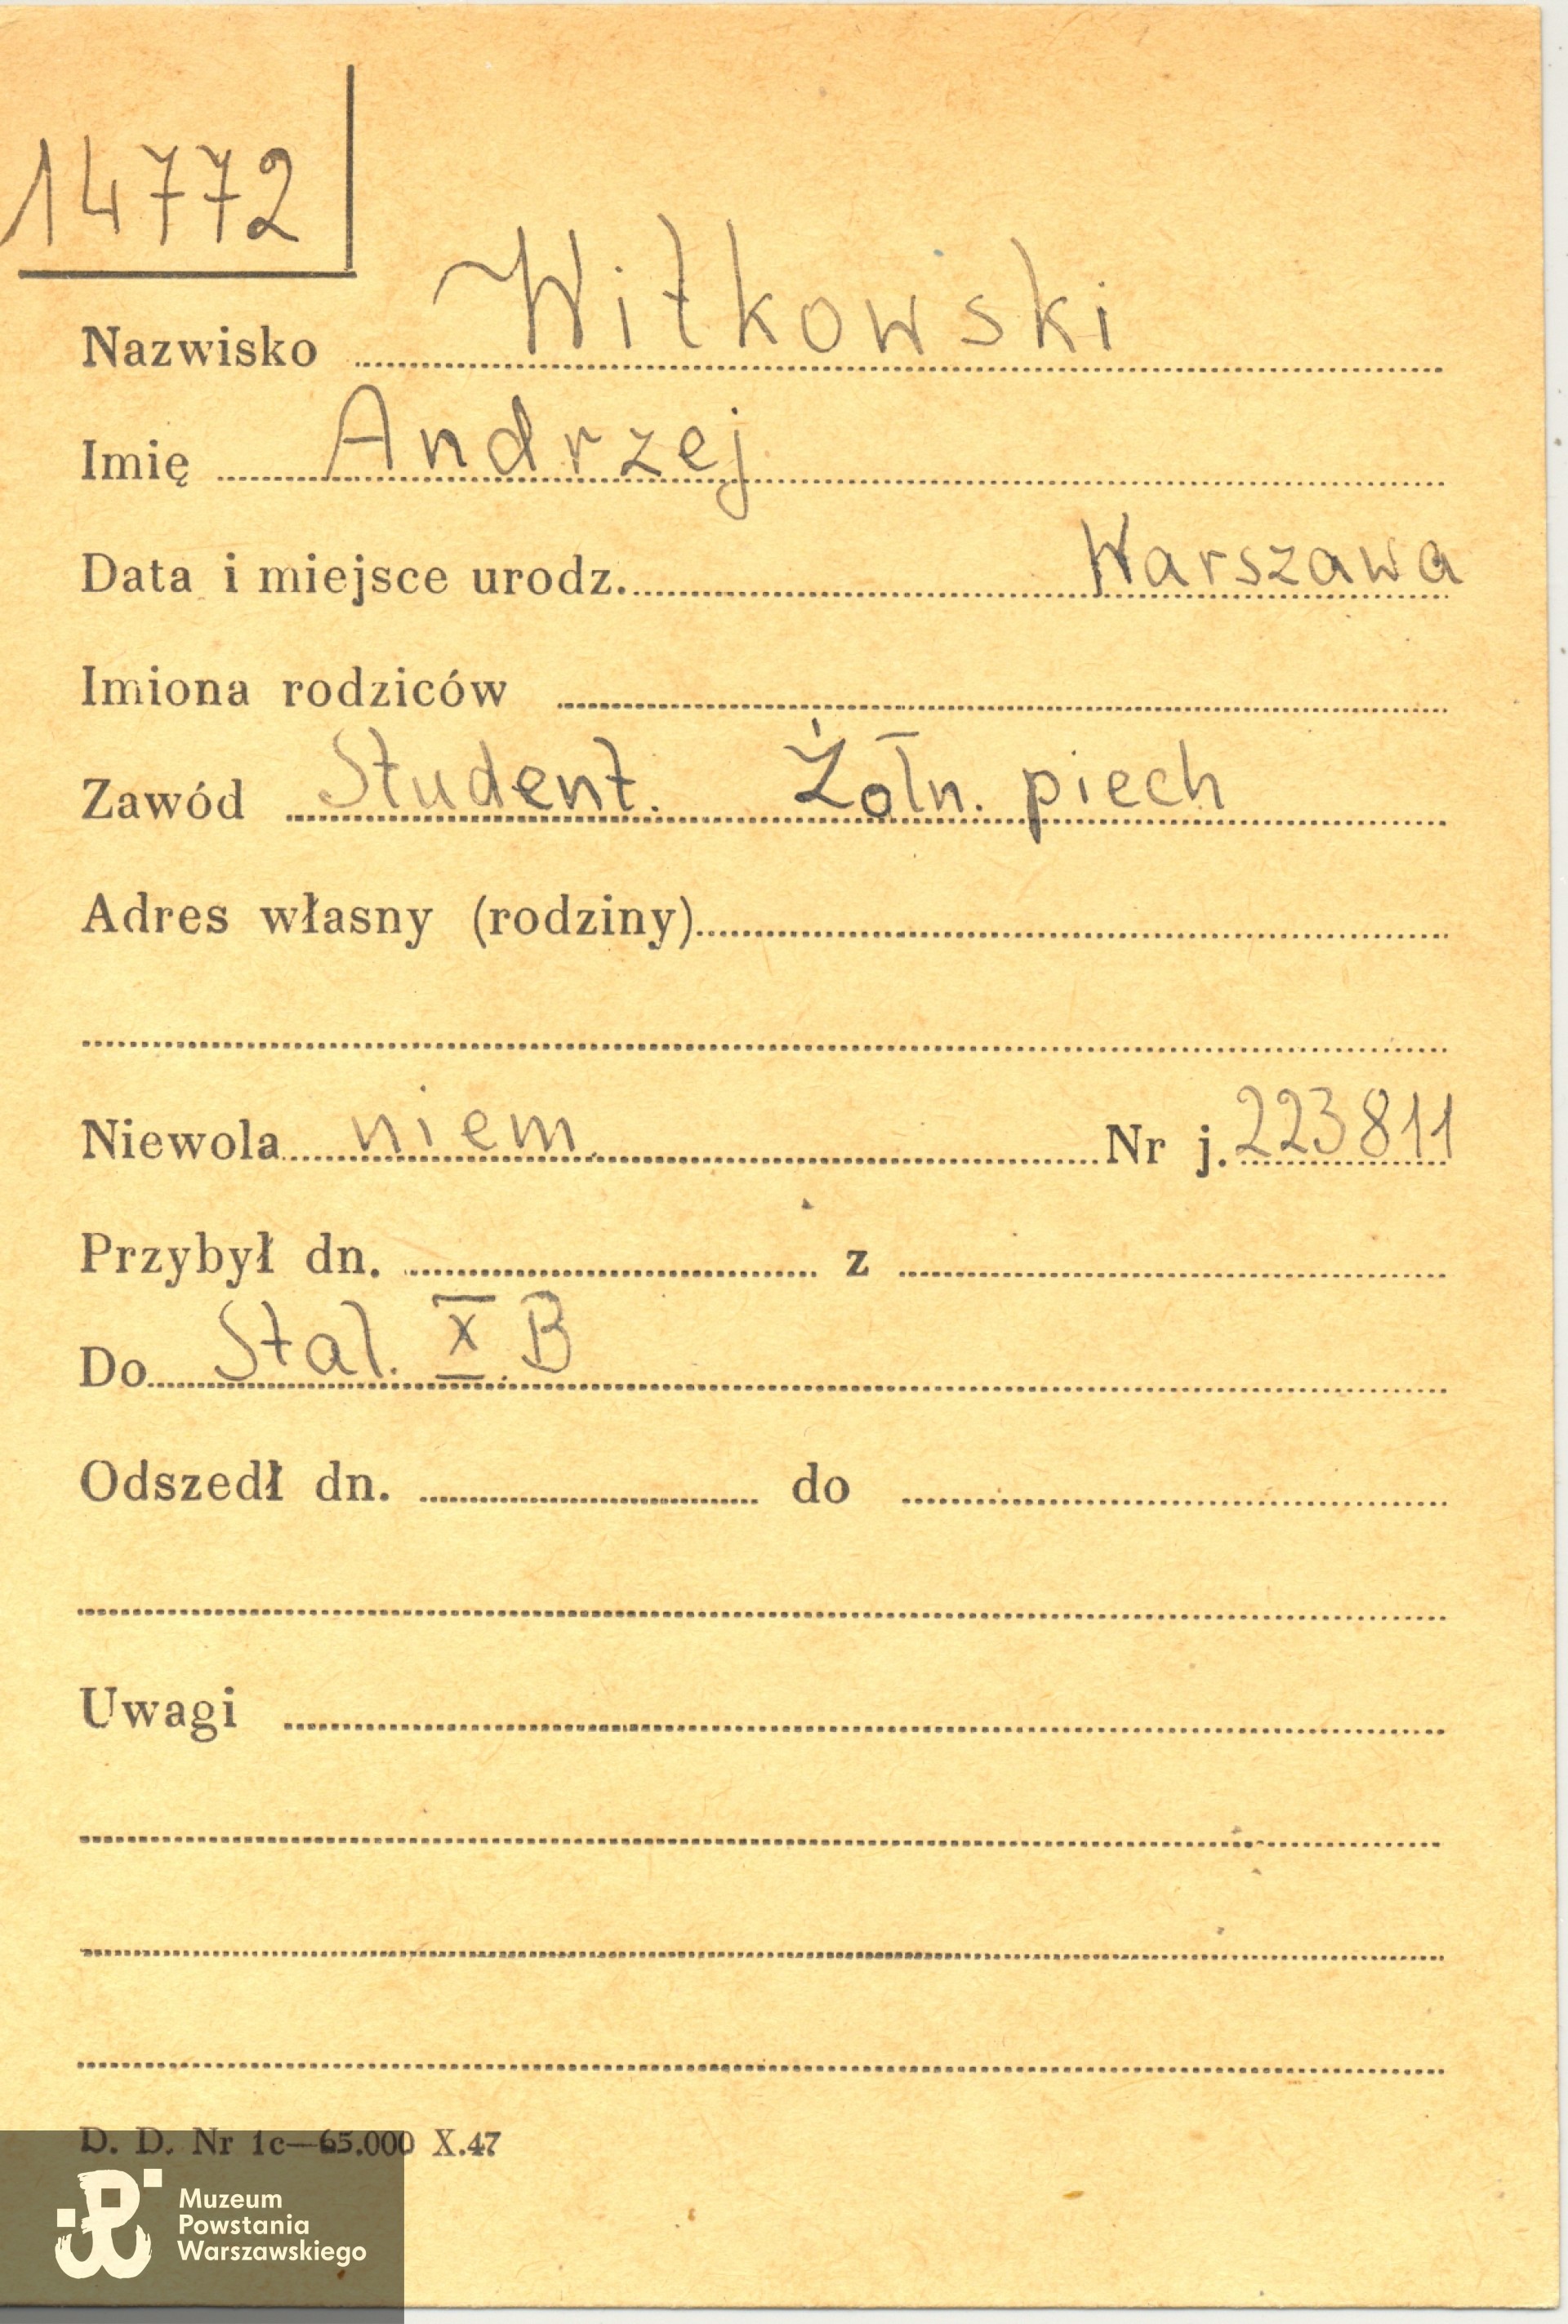 14772
Nazwisko Witkowski
Imię Andrzej
Data i miejsce urodz. Warszawa
Imiona rodziców
Zawód Student. Żołn. piech
Adres własny (rodziny)
Niewola niem. Nr j. 223811
Przybył dn. z
Do Stal. X. B
Odszedł dn. do
Uwagi
D. D. Nr 1c—65.000 X.47
Muzeum
Powstania
Warszawskiego